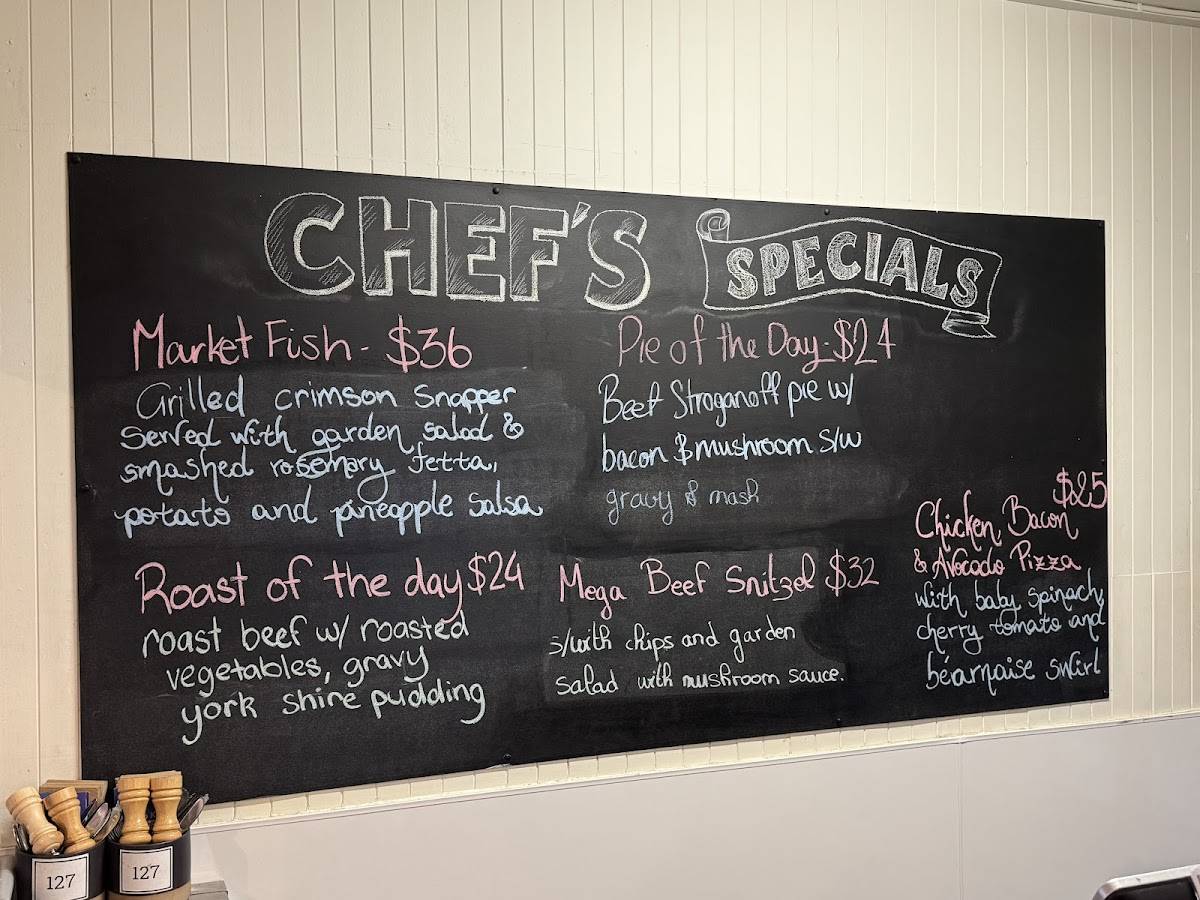 CHEF'S SPECIALS
Market Fish - $36
Grilled crimson Snapper
Served with garden salad &
smashed rosemary fetta,
potato and pineapple salsa
Pie of the Day - $24
Beef Stroganoff pie w/
bacon & mushroom S/w
gravy & mash
Roast of the day $24
roast beef w/ roasted
vegetables, gravy
york shire pudding
Mega Beef Snitzel $32
s/with chips and garden
salad with mushroom sauce.
$25
Chicken Bacon
& Avocado Pizza
with baby spinach,
cherry tomato and
béarnaise swirl
127
127